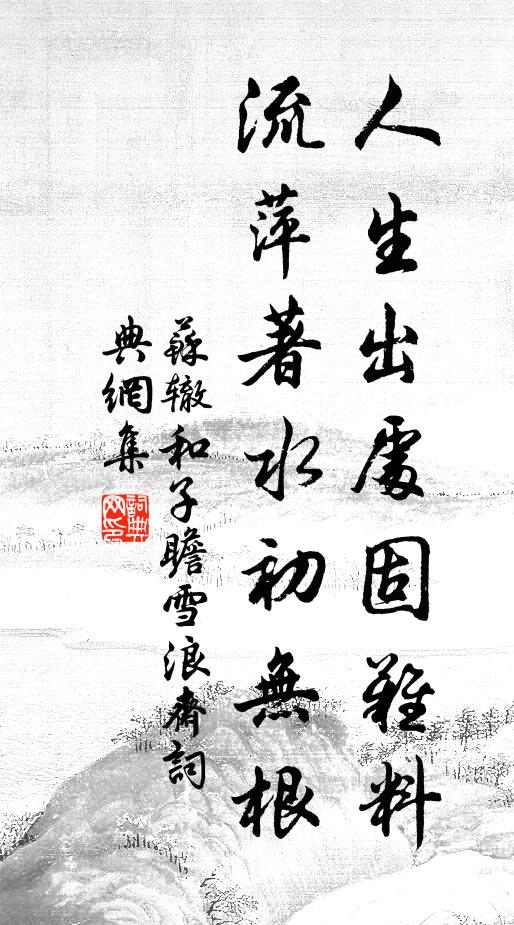 人生出處固難料
流萍著水初無根
蘇轍和子瞻雪浪齋詞
典網集
詞典网印